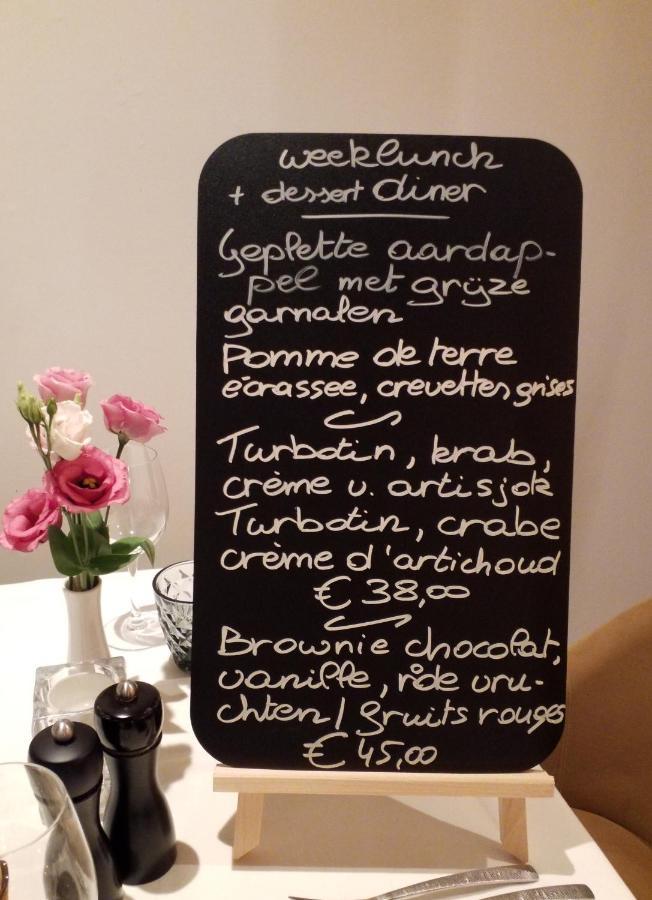 weeklunch
+ dessert diner
Geplette aardap-
pel met grijze
garnalen
Pomme de terre
écrassee, crevettes grises
Turbotin, krab,
crème v. artisjok
Turbotin, crabe
crème d'artichoud
€ 38,00
Brownie chocolat,
vanille, rôde vru-
chten / fruits rouges
€ 45,00